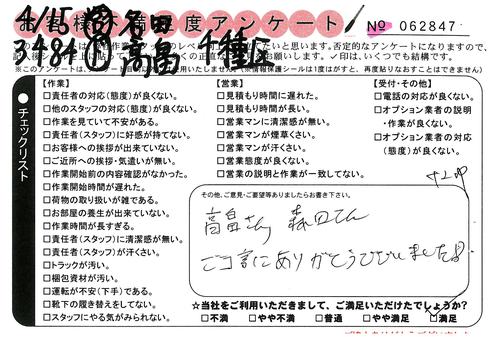 4/15
お客様不満足度アンケート
№ 062847
3484
高畠 千種区
チェックリスト
【作業】
□責任者の対応(態度)が良くない。
□他のスタッフの対応(態度)が良くない。
□作業を見ていて不安がある。
□責任者(スタッフ)に好感が持てない。
□お客様への挨拶が出来ていない。
□ご近所への挨拶・気遣いが無い。
□作業開始前の内容確認がなかった。
□作業開始時間が遅れた。
□荷物の取り扱いが雑である。
□お部屋の養生が出来ていない。
□作業時間が長すぎる。
□責任者(スタッフ)に清潔感が無い。
□責任者(スタッフ)が汗くさい。
□トラックが汚い。
□梱包資材が汚い。
□運転が不安(下手)である。
□靴下の履き替えをしてない。
□スタッフにやる気がみられない。
【営業】
□見積もり時間に遅れた。
□見積もり時間が長い。
□営業マンに清潔感が無い。
□営業マンが煙草くさい。
□営業マンが汗くさい。
□営業態度が良くない。
□営業の説明と作業が一致してない。
【受付・その他】
□電話の対応が良くない。
□オプション業者の説明
・作業が良くない。
□オプション業者の対応
(態度)が良くない。
その他、ご意見・ご要望等ありましたらお書き下さい。
高畠さん 森田さん
ありがとうございました
☆当社をご利用いただきまして、ご満足いただけたでしょうか?
□不満 □やや不満 □普通 □やや満足 □満足